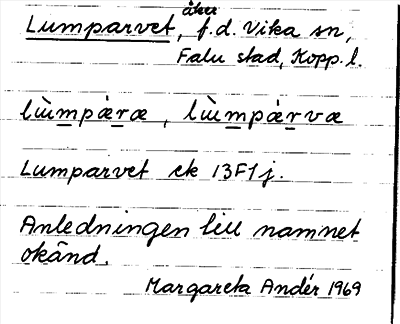 Lumparvet, åker f.d. Vika sn,
Falu stad, Kopp. l.
lùmpàræ, lùmpàrvæ
Lumparvet ek 13F1j.
Anledningen till namnet
okänd.
Margareta Andér 1969